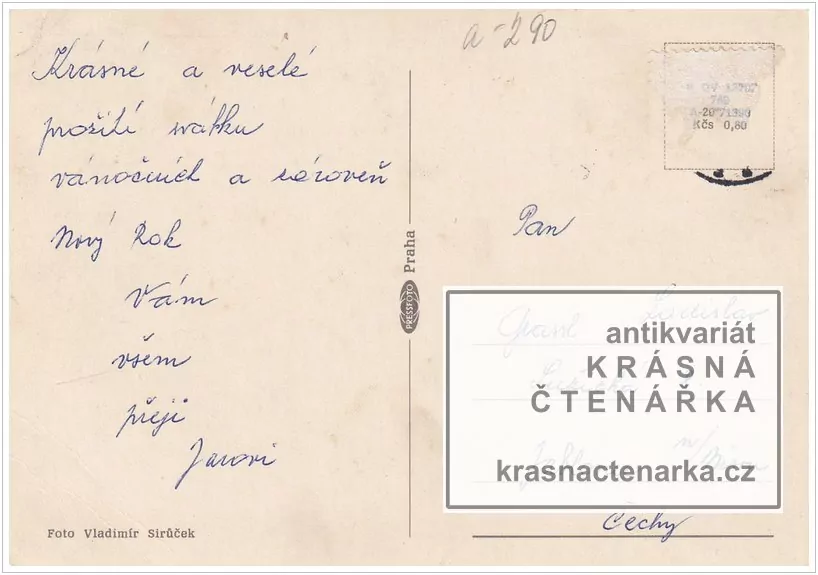 a-290
Krásné a veselé
prožití svátku
vánočních a zároveň
Nový Rok
Vám
všem
přejí
Jarovi
Foto Vladimír Sirůček
PRESSFOTO Praha
Kčs 0,60
Pan
Ladislav
antikvariát
KRÁSNÁ
ČTENÁŘKA
krasnactenarka.cz
Čechy